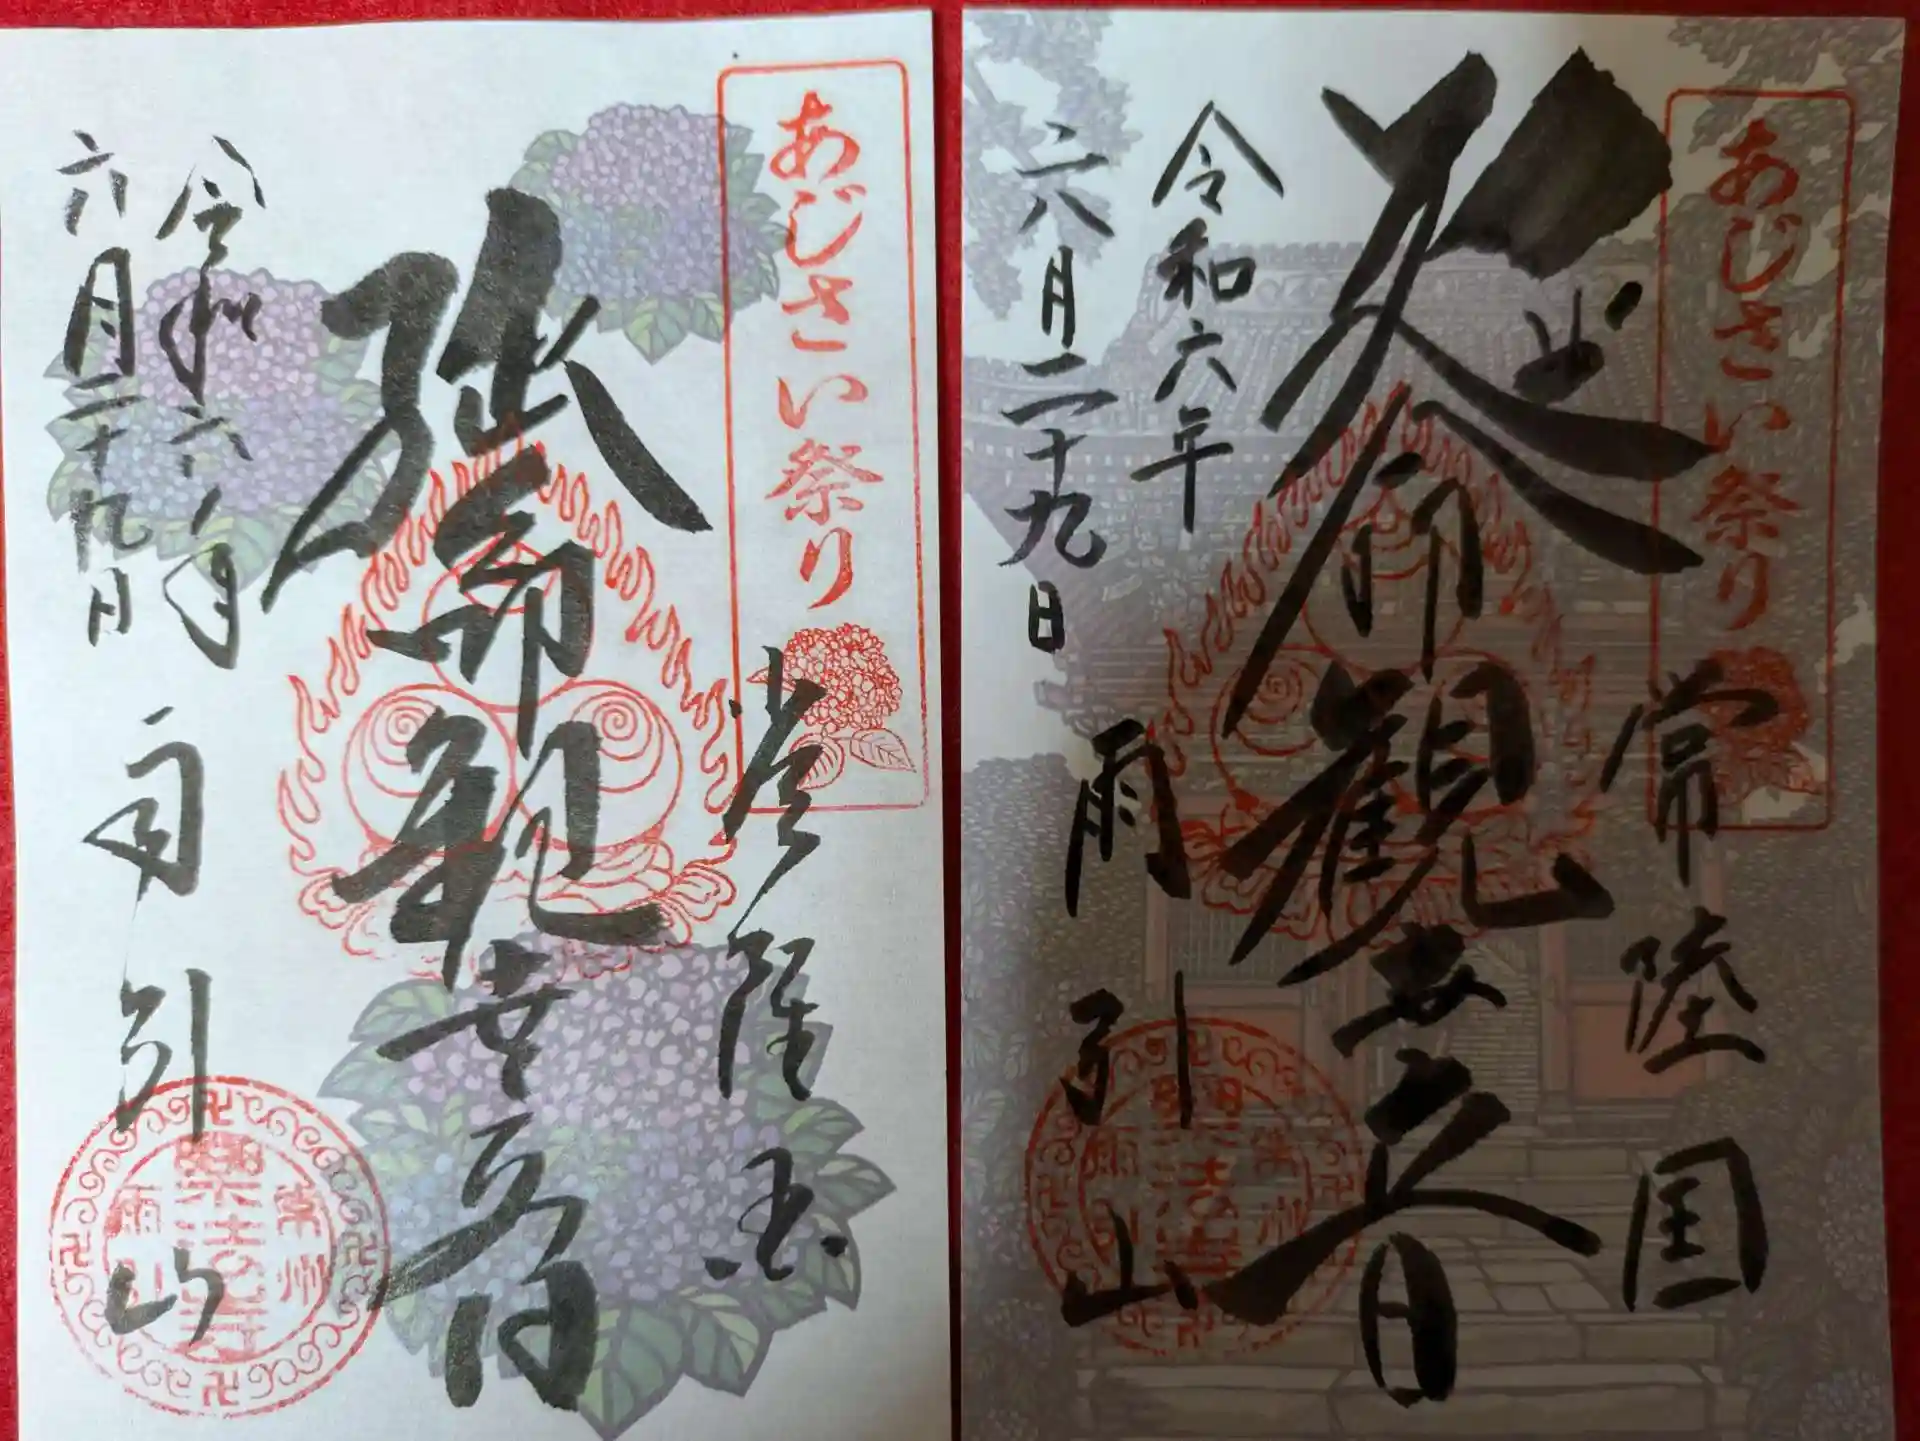 あじさい祭り
常陸国
延命観世音
令和六年
六月二十九日
雨引山
楽法寺
常州
雨引
あじさい祭り
常陸国
延命観世音
令和六年
六月二十九日
雨引山
楽法寺
常州
雨引